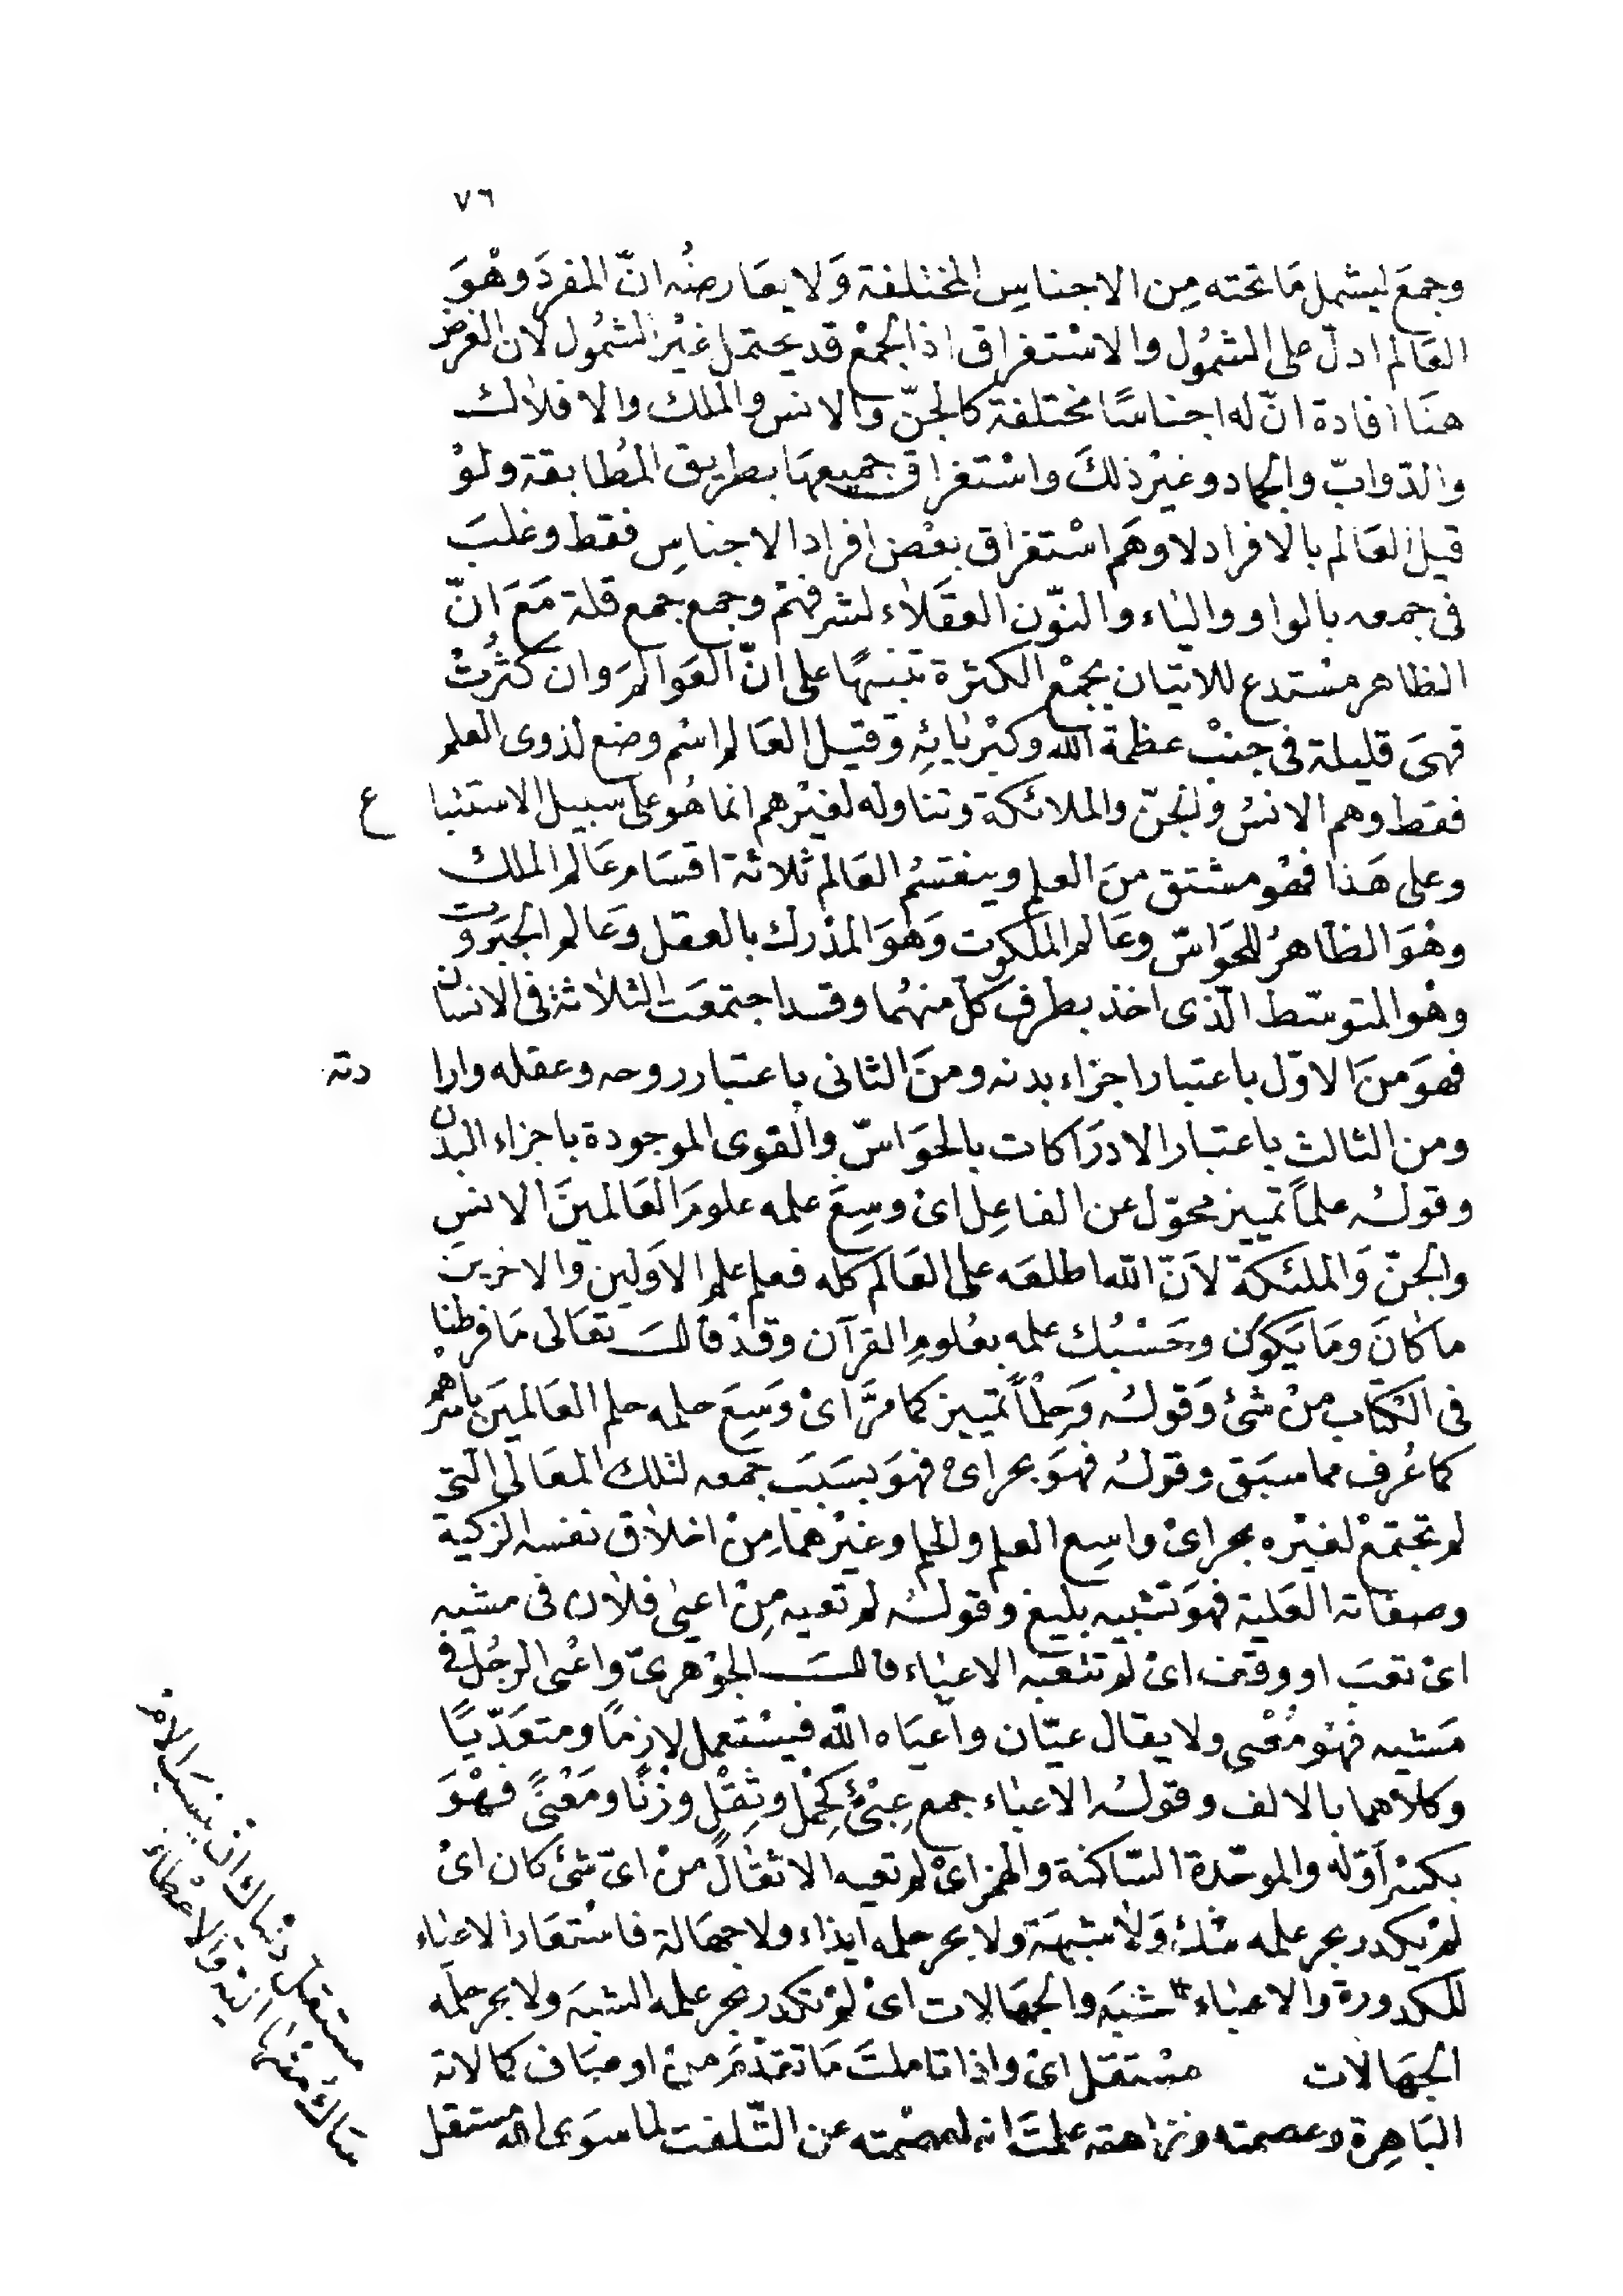 ٧٦
وجمعَ ليشمل مَا تحته مِن الاجناسِ المختلفة وَلا يعَارضُه انّ المفردَ وهْوَ
العَالم ادلّ على الشمُول والاسْتغراق اذ الجمْع قد يحتمل غيْر الشمُول لان الغرض
هنَا افادة انّ له اجناسًا مختلفة كالجنّ والانس والملك والافلاك
والدّوابّ والجماد وغيْر ذلكَ واسْتغراق جميعهَا بطريق المُطابقة ولوْ
قيل العَالم بالافراد لاوهَم اسْتغراق بعْض افراد الاجناسِ فقط وغلبَ
فى جمعه بالواو والياء والنوّن العقَلاء لشرفهمْ وجمع جمع قلة مَعَ انّ
الظاهر مسْتدع للاتيان بجمْع الكثرة تنبيهًا على انّ العَوالمَ وان كثُرتْ
فهىَ قليلة فى جنبْ عظمة الله وكبْريَائِه وَقيل العَالم اسْم وضع لذوى العلم
فقط وهم الانسُ والجنّ والملائكة وتناوله لغيْرهم انما هُو على سبيل الاستتبا ع
وعلى هَذا فهْو مشتق منَ العلم وينقسمُ العَالم ثلاثة اقسَام عَالم الملك
وهْوَ الظاهرُ للحَواسّ وعَالم الملكوت وَهوَ المدْرك بالعقل وعَالم الجبَروت
وهْو المتوسّط الّذى اخذ بطرفِ كلّ منهُما وقد اجتمعَت الثلاثة فى الانسان
فهوَ منَ الاوّل باعتبار اجزاء بدنه ومنَ الثانى باعتبار روحه وعقله وارا دته
ومن الثالث باعتبار الادرَاكات بالحوَاسّ والقوى الموجودة باجزاء البدن
وقولُه علماً تمييز محوّل عن الفاعِل اىْ وسِعَ علمه علومَ العَالمينَ الانسِ
والجنّ وَالملئكة لاَنّ الله اطلعَه على العَالم كله فعلم علم الاوَلين والاخرين
ماكانَ ومَا يَكون وحَسْبُك علمه بعُلومِ القرآن وقدْ قالَ تعَالى مَا فرطنا
فى الكتاب منْ شئ وَقولُه وَحِلْماً تمييز كما مرَّ اىْ وَسِعَ حلمه حلم العَالميَن باسْرهمْ
كما عُرف مما سبَق وقولُه فهوَ بحر اىْ فهوَ بسَبَب جمعه لتلك المعَالى الّتى
لم تجتمعْ لغيْره بحر اىْ واسِع العلم والحلم وغيْرهمَا مِنْ اخلاق نفسه الزكية
وصفاته العَلية فهوَ تشبيه بليغ وقولُه لم تعيه مِنْ اعيى فلان فى مشيه
اىْ تعبَ او وقف اىْ لم تتْعبْه الاعبَاء قالَ الجوْهرىّ واعْيى الرجُل فى
مَشيه فهُو مُعْىٍ ولا يقال عيّان واَعيَاه الله فيسْتعمل لازِمًا ومتعَدّيًا
وكلاهما بالالف وقولُه الاعبَاء جمع عِبْئ كحِمْل وثِقْل وزْنًا ومَعْنىً فهْوَ
بكسْر أوّله والموحّدة السّاكنة والهمز اىْ لم تعيه الاثقَال منْ اىّ شئ كان اىْ
لمْ يكدر بحر علمه شكْ وَلا شبْهَة ولا بحر حلمه ايذاء ولا جهَالة فاسْتعَار الاعيَاء
للكدورة والاعباء للشبَه والجهَالات اىْ لمْ تكدر بحر علمه الشبَه ولا بحر حلمَه
الجهَالات مسْتقل اىْ واذا تاملتَ مَا تقدّمَ منْ اوصَاف كمالاته
البَاهِرة وعصمته ونزاهته علمتَ انه لعصْمته عن التّلفت لما سوَى الله مستقل
مستقل دنْياك انْ ينسَبَ الامْـ
ساك منْها اليْه وَالاعْطاءُ